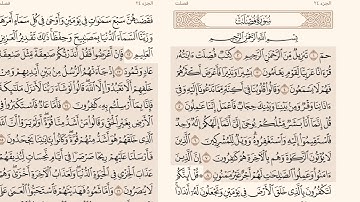 الجزء ٢٤ فصلت
سُورَةُ فُصِّلَتْ
بِسْمِ اللَّهِ الرَّحْمَٰنِ الرَّحِيمِ
حمٓ ١ تَنزِيلٌ مِّنَ الرَّحْمَٰنِ الرَّحِيمِ ٢ كِتَٰبٌ فُصِّلَتْ ءَايَٰتُهُۥ
قُرْءَانًا عَرَبِيًّا لِّقَوْمٍ يَعْلَمُونَ ٣ بَشِيرًا وَنَذِيرًا فَأَعْرَضَ أَكْثَرُهُمْ
فَهُمْ لَا يَسْمَعُونَ ٤ وَقَالُوا۟ قُلُوبُنَا فِىٓ أَكِنَّةٍ مِّمَّا تَدْعُونَآ إِلَيْهِ وَفِىٓ
ءَاذَانِنَا وَقْرٌ وَمِنۢ بَيْنِنَا وَبَيْنِكَ حِجَابٌ فَٱعْمَلْ إِنَّنَا عَٰمِلُونَ ٥
قُلْ إِنَّمَآ أَنَا۠ بَشَرٌ مِّثْلُكُمْ يُوحَىٰٓ إِلَىَّ أَنَّمَآ إِلَٰهُكُمْ إِلَٰهٌ وَٰحِدٌ
فَٱسْتَقِيمُوٓا۟ إِلَيْهِ وَٱسْتَغْفِرُوهُ وَوَيْلٌ لِّلْمُشْرِكِينَ ٦ ٱلَّذِينَ
لَا يُؤْتُونَ ٱلزَّكَوٰةَ وَهُم بِٱلْءَاخِرَةِ هُمْ كَٰفِرُونَ ٧ إِنَّ ٱلَّذِينَ
ءَامَنُوا۟ وَعَمِلُوا۟ ٱلصَّٰلِحَٰتِ لَهُمْ أَجْرٌ غَيْرُ مَمْنُونٍ ٨ قُلْ أَئِنَّكُمْ
لَتَكْفُرُونَ بِٱلَّذِى خَلَقَ ٱلْأَرْضَ فِى يَوْمَيْنِ وَتَجْعَلُونَ لَهُۥٓ أَندَادًا
الجزء ٢٤ فصلت
فَقَضَىٰهُنَّ سَبْعَ سَمَٰوَاتٍ فِى يَوْمَيْنِ وَأَوْحَىٰ فِى كُلِّ سَمَآءٍ أَمْرَهَا
وَزَيَّنَّا ٱلسَّمَآءَ ٱلدُّنْيَا بِمَصَٰبِيحَ وَحِفْظًا ذَٰلِكَ تَقْدِيرُ ٱلْعَزِيزِ
ٱلْعَلِيمِ ١٢ فَإِنْ أَعْرَضُوا۟ فَقُلْ أَنذَرْتُكُمْ صَٰعِقَةً مِّثْلَ صَٰعِقَةِ
عَادٍ وَثَمُودَ ١٣ إِذْ جَآءَتْهُمُ ٱلرُّسُلُ مِنۢ بَيْنِ أَيْدِيهِمْ وَمِنْ
خَلْفِهِمْ أَلَّا تَعْبُدُوٓا۟ إِلَّا ٱللَّهَ قَالُوا۟ لَوْ شَآءَ رَبُّنَا لَأَنزَلَ مَلَٰٓئِكَةً
فَإِنَّا بِمَآ أُرْسِلْتُم بِهِۦ كَٰفِرُونَ ١٤ فَأَمَّا عَادٌ فَٱسْتَكْبَرُوا۟ فِى
ٱلْأَرْضِ بِغَيْرِ ٱلْحَقِّ وَقَالُوا۟ مَنْ أَشَدُّ مِنَّا قُوَّةً أَوَلَمْ يَرَوْا۟ أَنَّ ٱللَّهَ
ٱلَّذِى خَلَقَهُمْ هُوَ أَشَدُّ مِنْهُمْ قُوَّةً وَكَانُوا۟ بِـَٔايَٰتِنَا يَجْحَدُونَ ١٥
فَأَرْسَلْنَا عَلَيْهِمْ رِيحًا صَرْصَرًا فِىٓ أَيَّامٍ نَّحِسَاتٍ لِّنُذِيقَهُمْ عَذَابَ
ٱلْخِزْىِ فِى ٱلْحَيَوٰةِ ٱلدُّنْيَا وَلَعَذَابُ ٱلْءَاخِرَةِ أَخْزَىٰ وَهُمْ
لَا يُنصَرُونَ ١٦ وَأَمَّا ثَمُودُ فَهَدَيْنَٰهُمْ فَٱسْتَحَبُّوا۟ ٱلْعَمَىٰ عَلَى